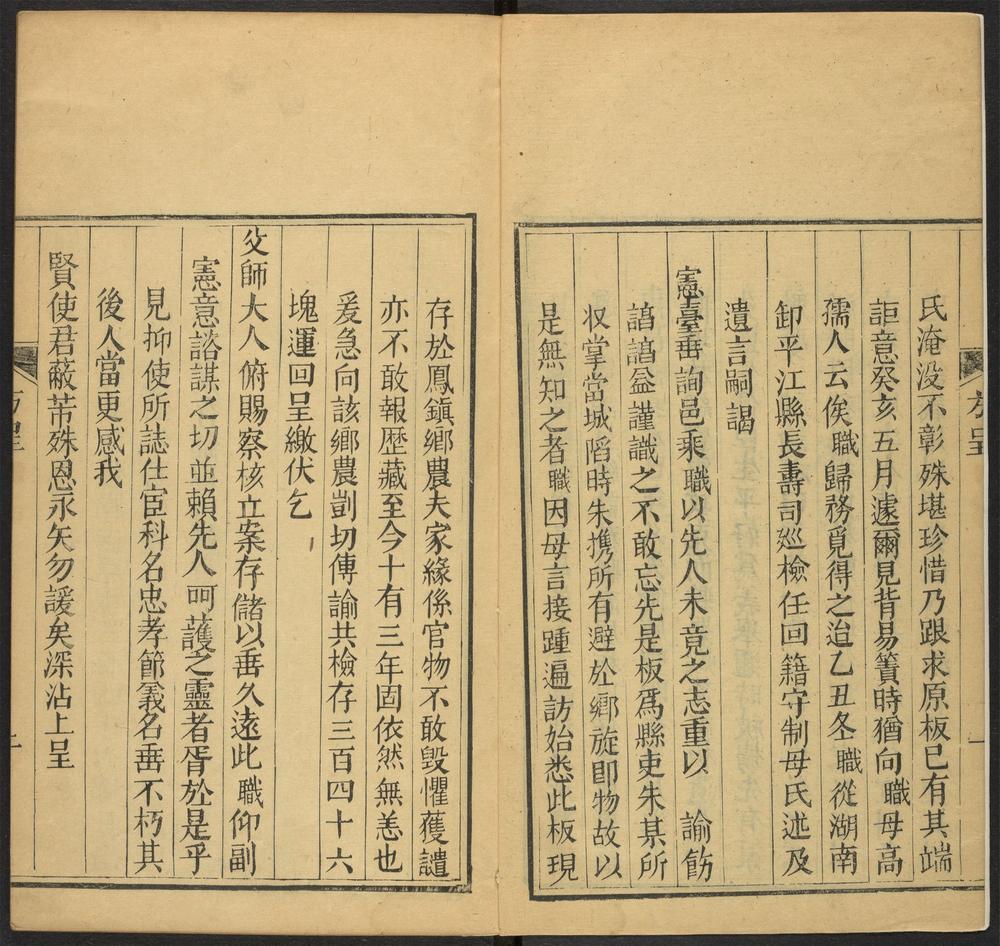 氏淹没不彰殊堪珍惜乃跟求原板已有其端
詎意癸亥五月遽爾見背易簀時猶向職母高
孺人云俟職歸務覓得之迨乙丑冬職從湖南
卸平江縣長壽司廵檢任回籍守制母氏述及
遺言嗣謁
憲臺垂詢邑乘職以先人未竟之志重以諭飭
諄諄益謹識之不敢忘先是板爲縣吏朱某所
収掌當城䧟時朱携所有避於鄉旋即物故以
是無知之者職因母言接踵遍訪始悉此板現
存於鳳鎮鄉農夫家緣係官物不敢毀懼獲譴
亦不敢報歴藏至今十有三年固依然無恙也
爰急向該鄉農剴切傳諭共檢存三百四十六
塊運回呈繳伏乞
父師大人俯賜察核立案存儲以垂久遠此職仰副
憲意諮謀之切並賴先人呵護之靈者胥於是乎
見抑使所誌仕宦科名忠孝節義名垂不朽其
後人當更感我
賢使君蔽芾殊恩永矢勿諼矣深沾上呈